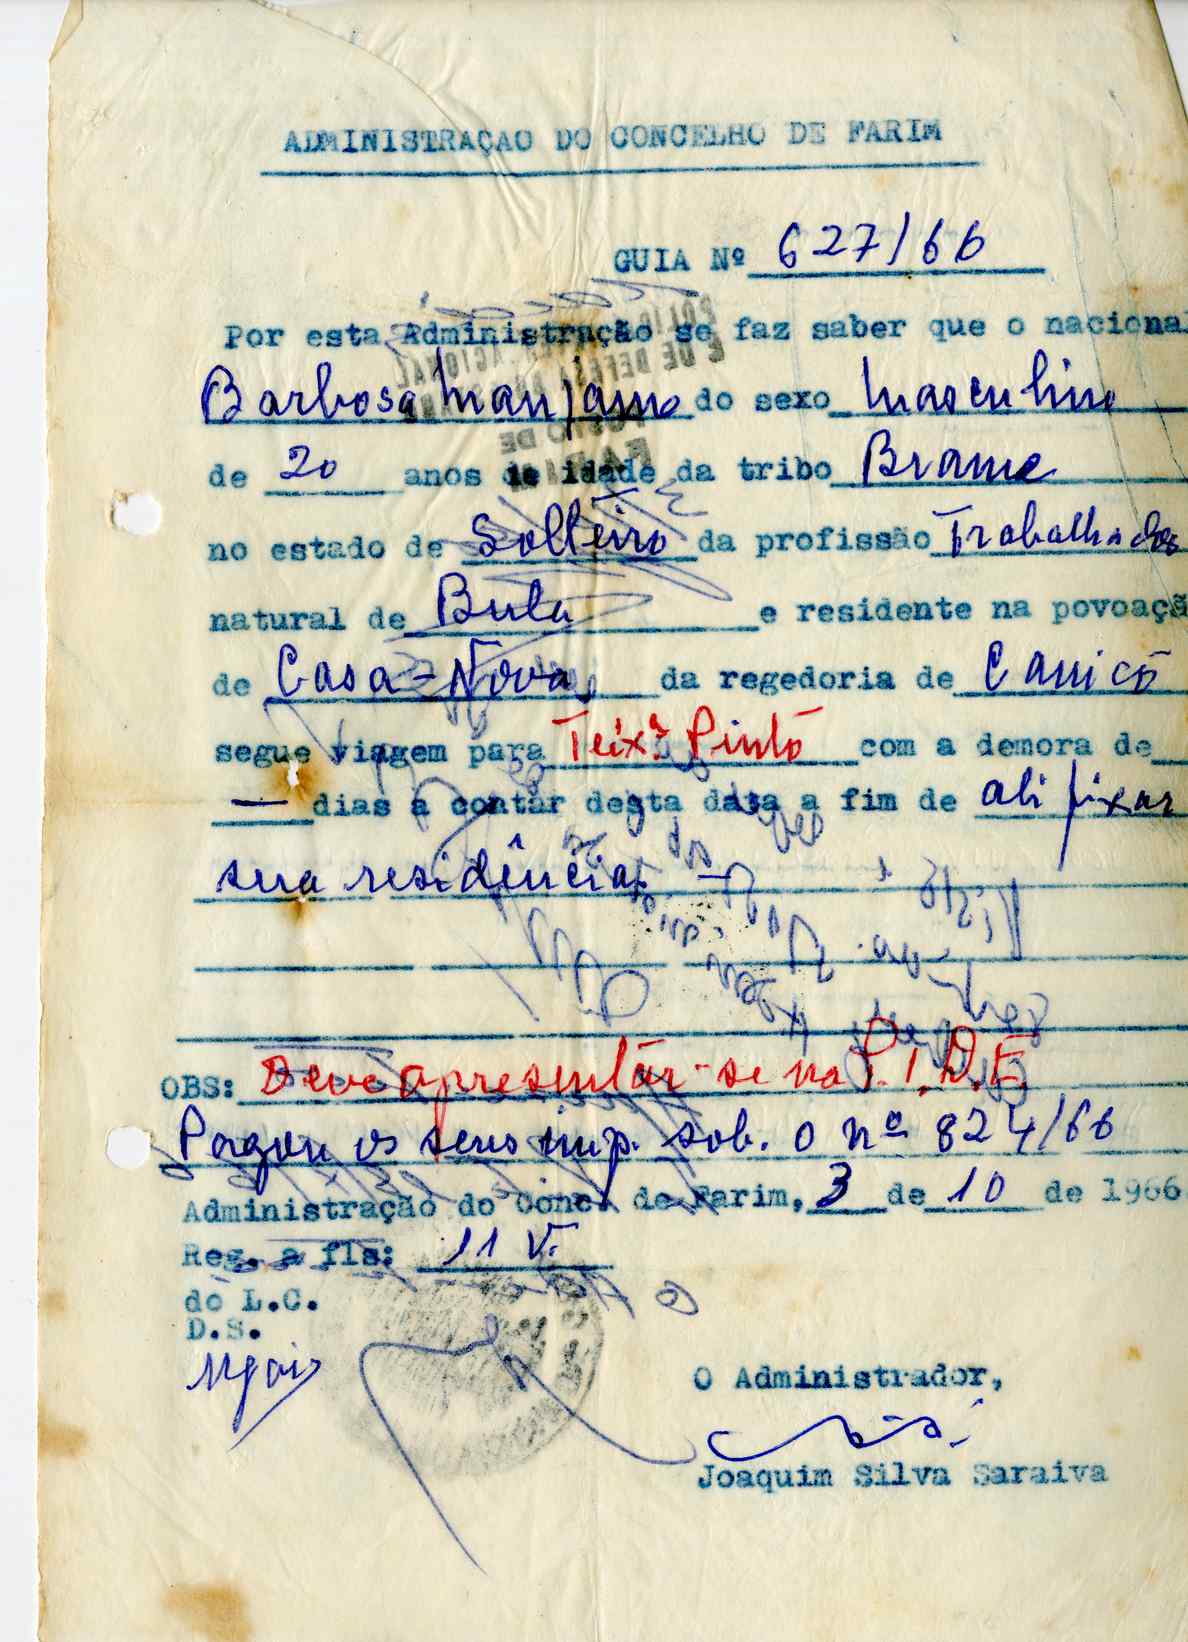 ADMINISTRAÇAO DO CONCELHO DE FARIM
GUIA Nº 627/66
Por esta Administração se faz saber que o nacional
Barbosa Manjamo do sexo Masculino
de 20 anos de idade da tribo Brame
no estado de Solteiro da profissão Trabalhador
natural de Bula e residente na povoaçã
de Casa-Nova, da regedoria de Canicó
segue viagem para Teixª Pinto com a demora de
— dias a contar desta data a fim de ali fixar
sua residência.
OBS: Deve apresentar-se na P.I.D.E.
Pagou os seus imp. sob. o nº 824/66
Administração do Conc. de Farim, 3 de 10 de 1966
Reg. a fls: 11 V.
do L.C.
D.S.
O Administrador,
Joaquim Silva Saraiva